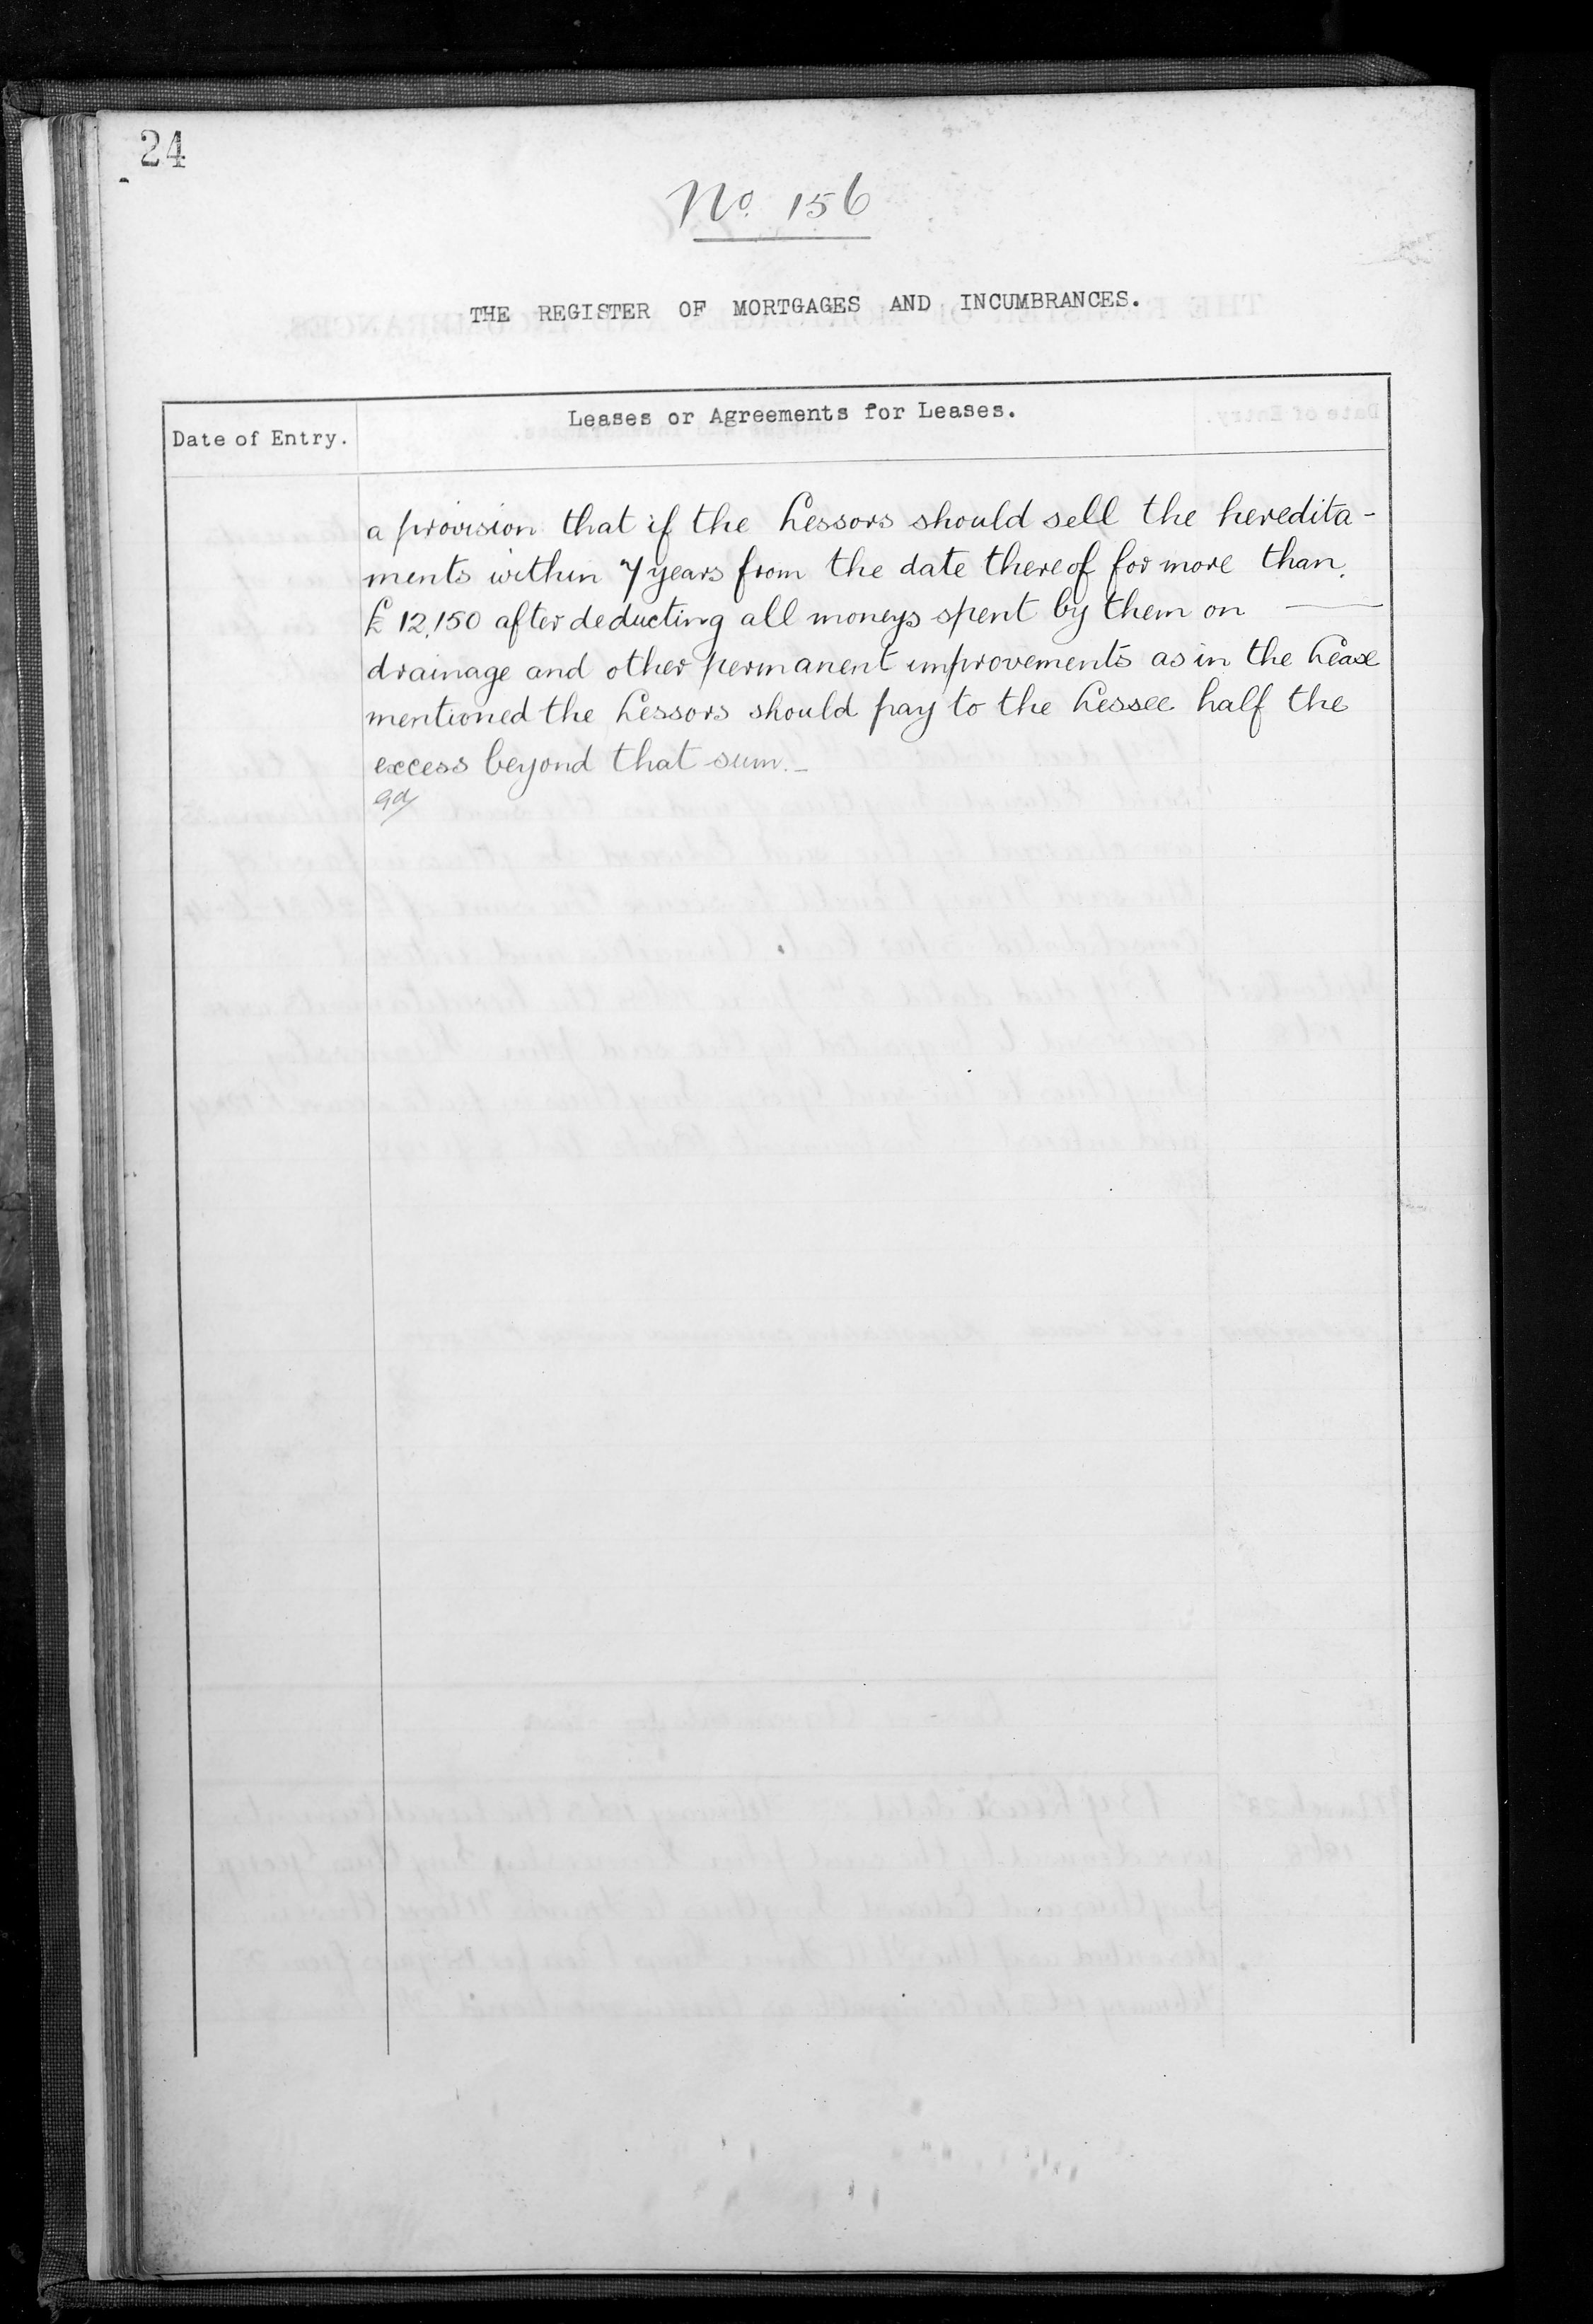 24
No. 156
THE REGISTER OF MORTGAGES AND INCUMBRANCES.
Date of Entry.
Leases or Agreements for Leases.
a provision that if the Lessors should sell the heredita-
ments within 7 years from the date thereof for more than
£12,150 after deducting all moneys spent by them on
drainage and other permanent improvements as in the Lease
mentioned the Lessors should pay to the Lessee half the
excess beyond that sum._